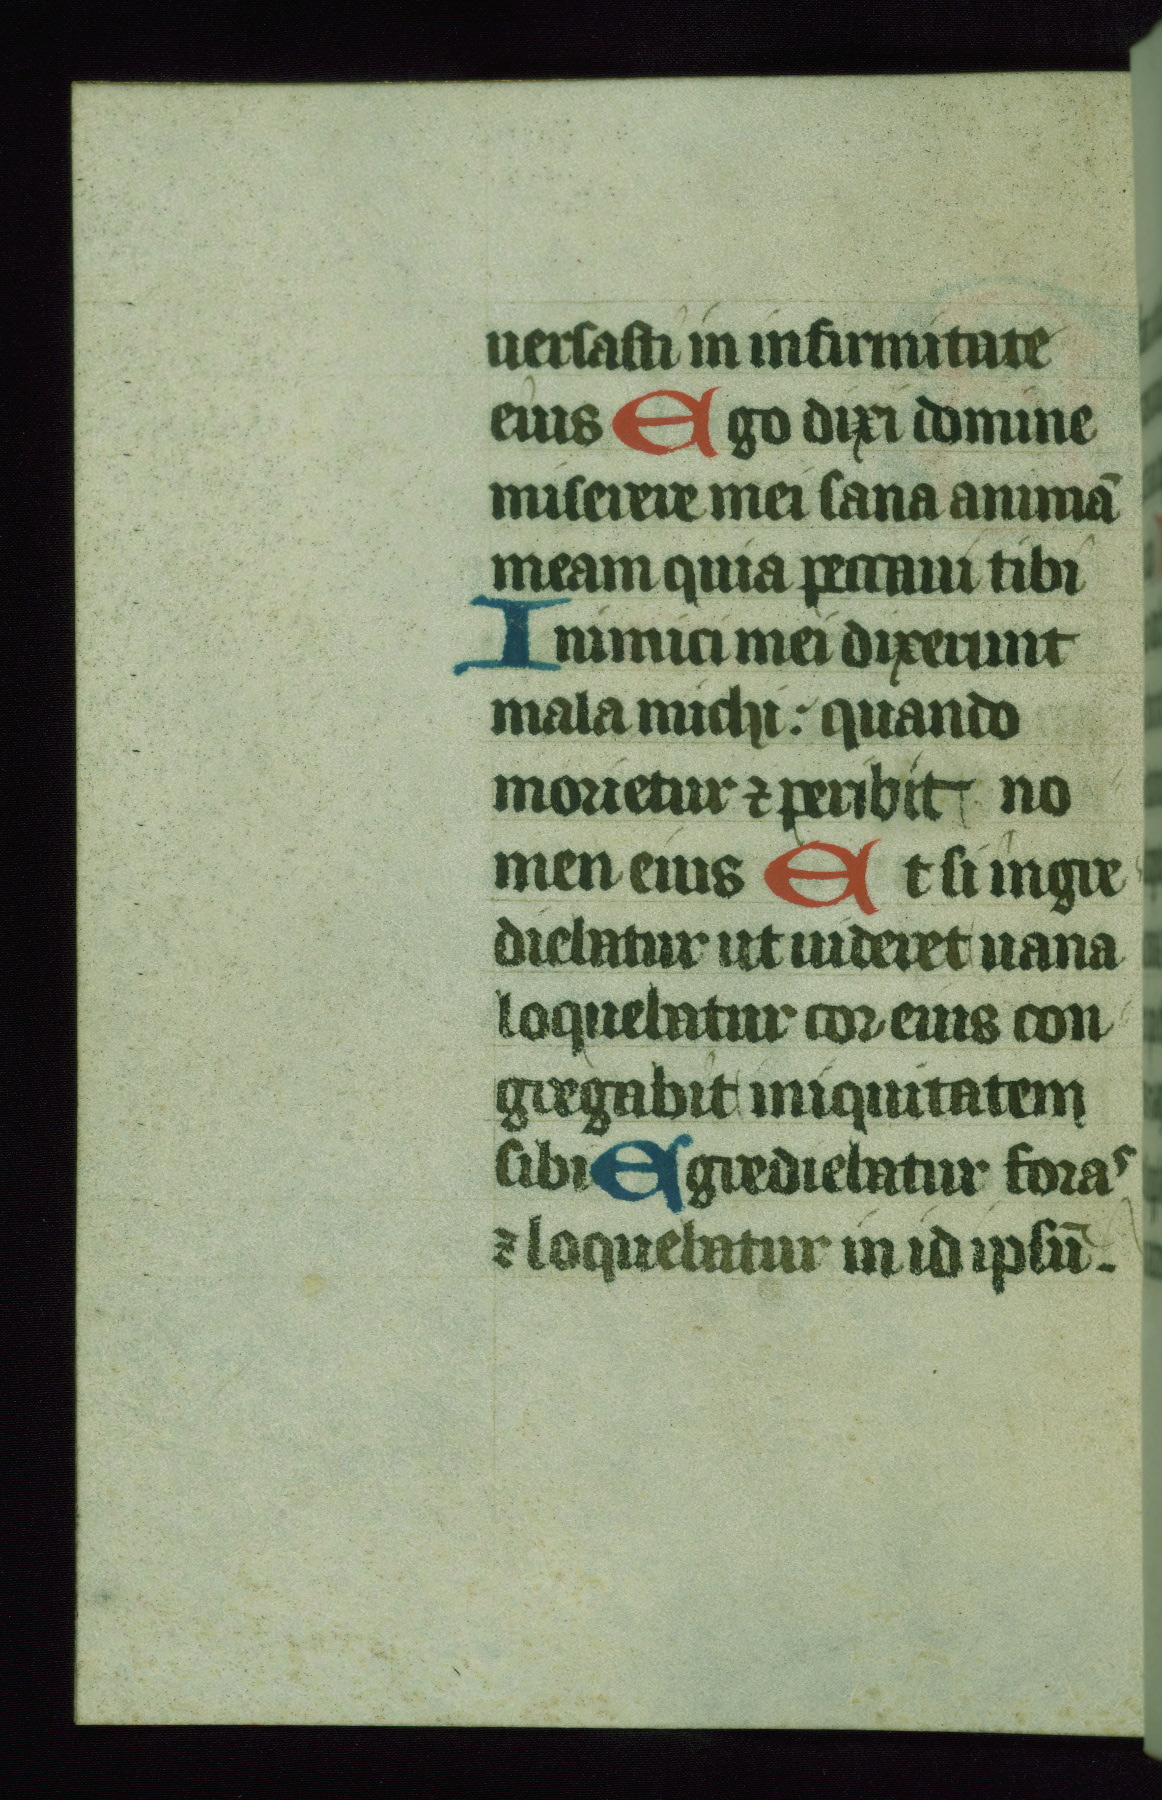 uersasti in infirmitate
eius Ego dixi domine
miserere mei sana animā
meam quia peccaui tibi
Inimici mei dixerunt
mala michi: quando
morietur ⁊ peribit no
men eius Et si ingre
diebatur ut uideret uana
loquebatur cor eius con
gregabit iniquitatem
sibi Egrediebatur foras
⁊ loquebatur in id ipsū.